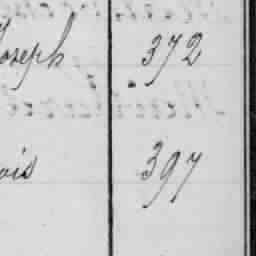 Joseph 372
ois 397